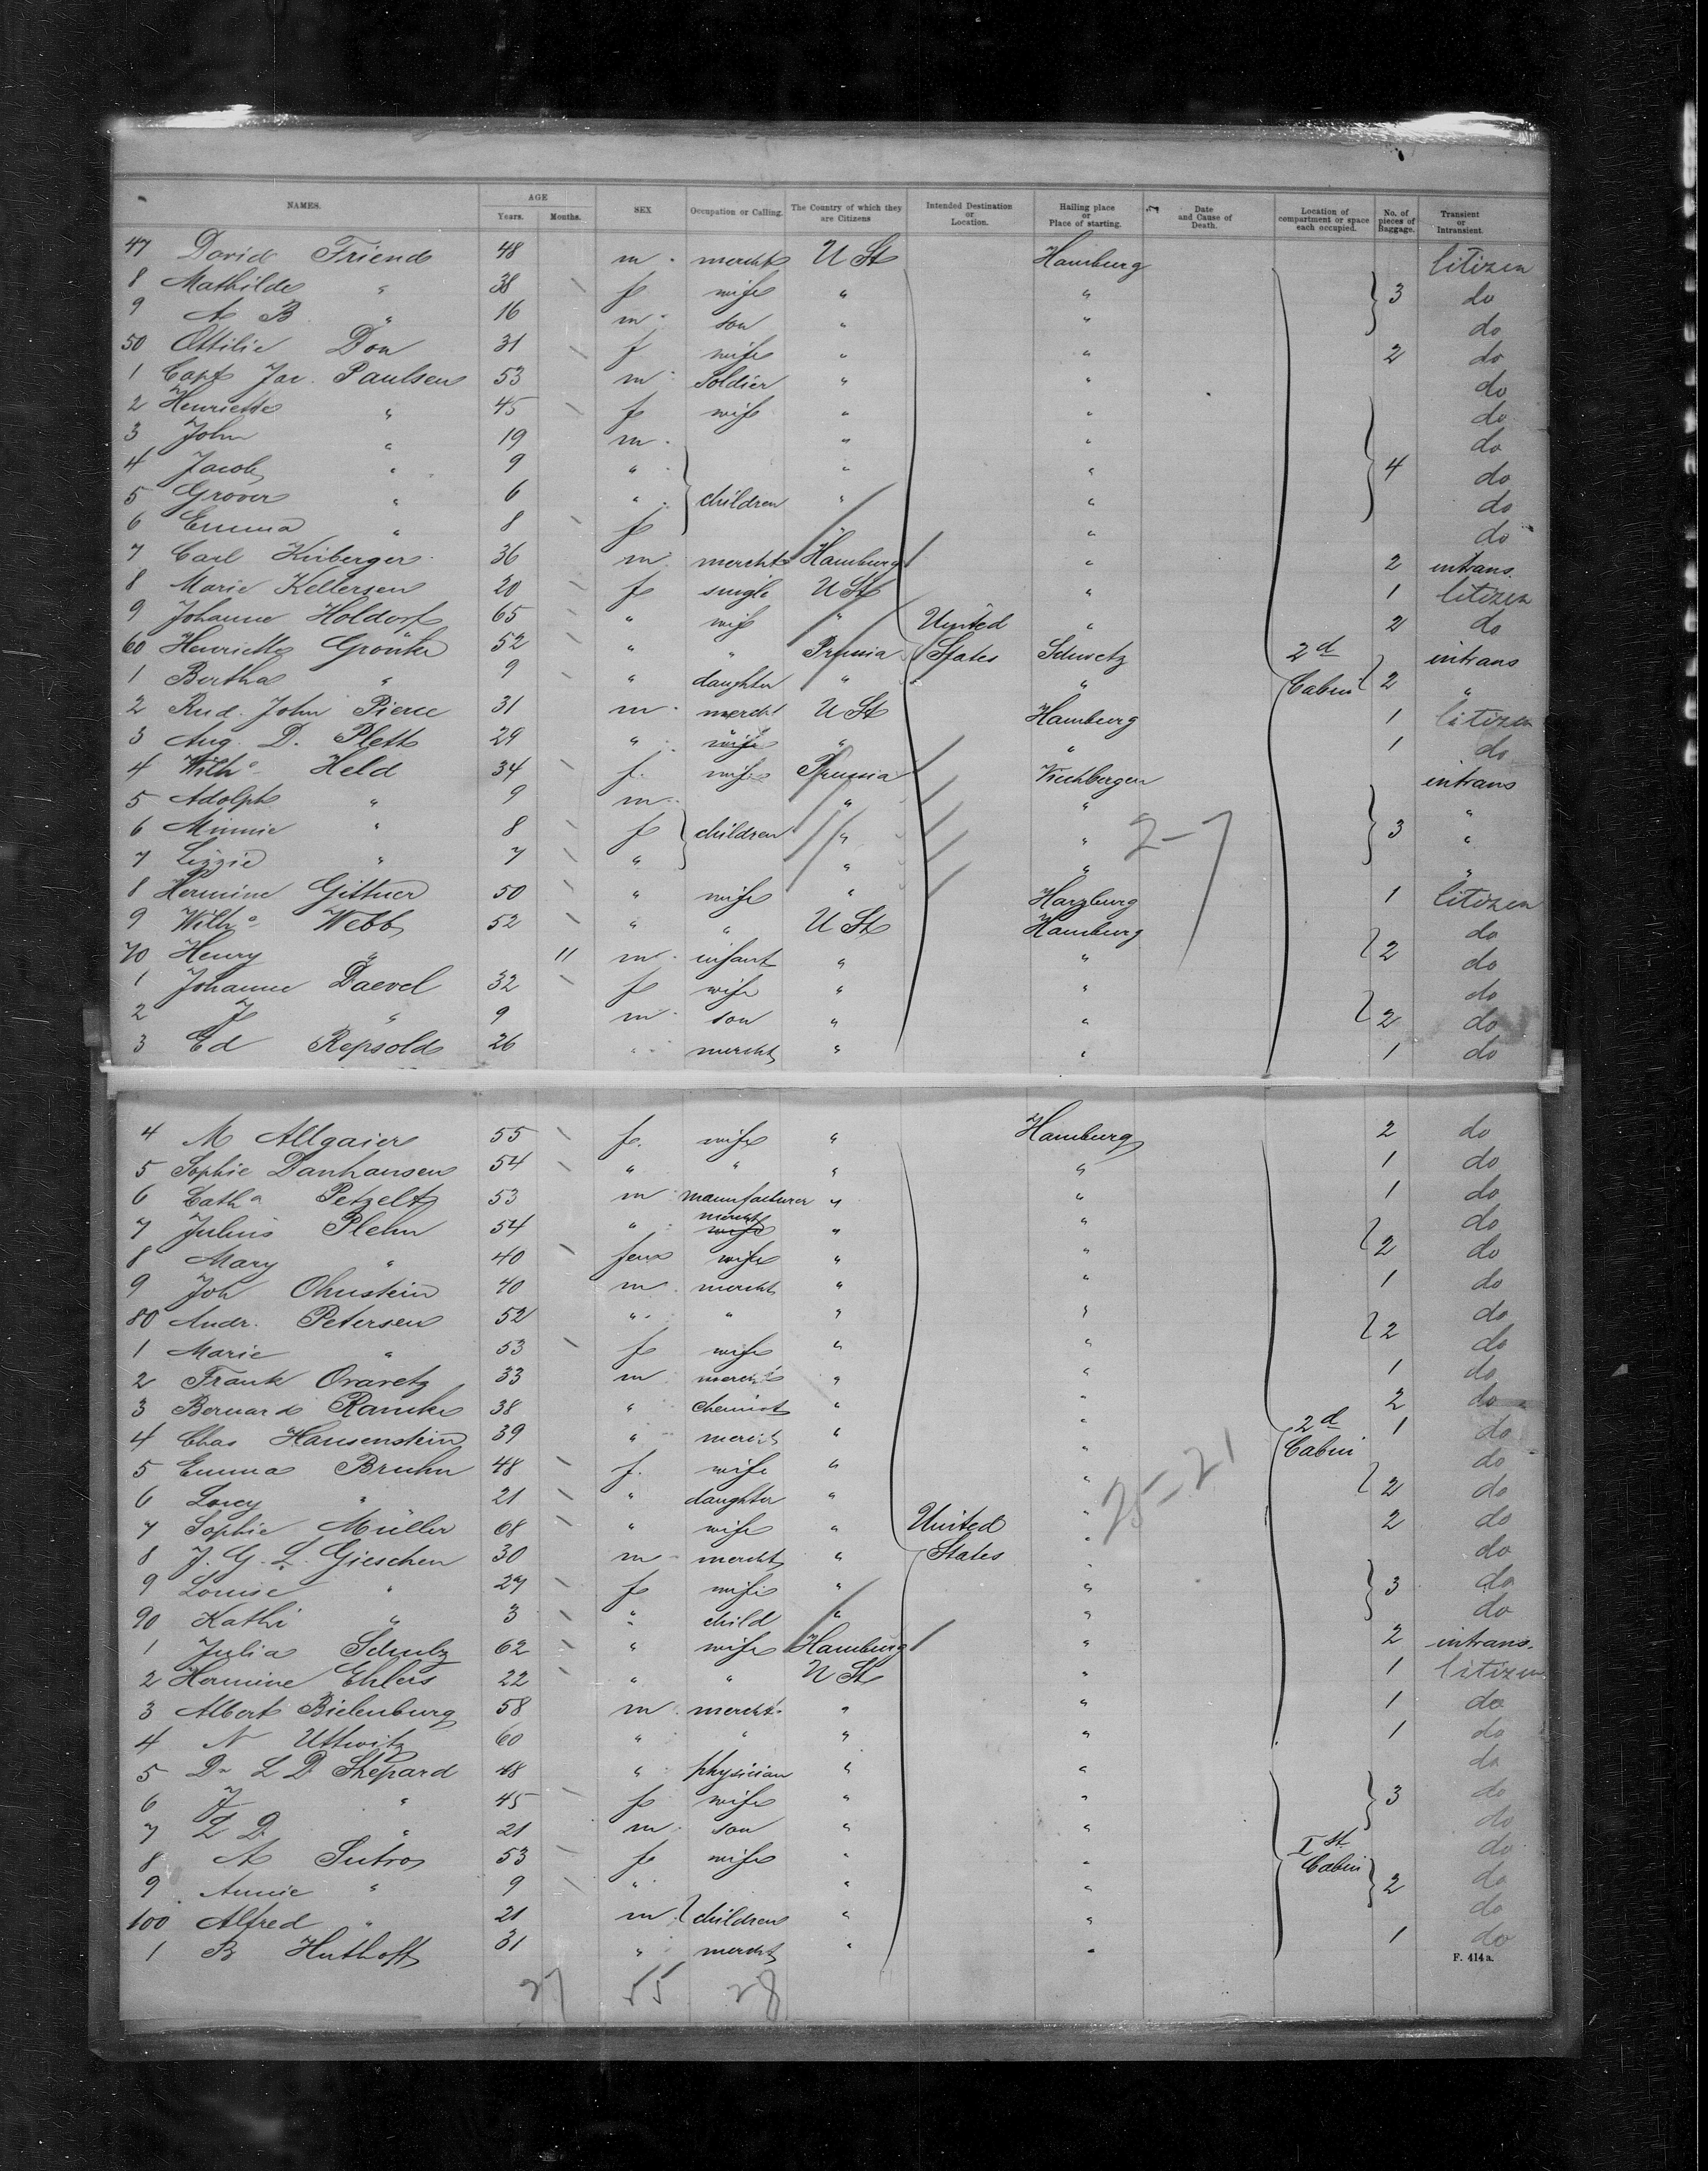 NAMES. AGE Years. Months. SEX Occupation or Calling. The Country of which they are Citizens Intended Destination or Location. Hailing place or Place of starting. Date and Cause of Death. Location of compartment or space each occupied. No. of pieces of Baggage. Transient or Intransient.
47 David Friend 48 m mercht U St Hamburg Citizen
8 Mathilde " 38 f wife " " 3 do
9 A B " 16 m son " " do
50 Ottilie Don 31 f wife " " 2 do
1 Capt Jac. Paulsen 53 m Soldier " " do
2 Henriette " 45 f wife " " do
3 John " 19 m " " do
4 Jacob " 9 " " " 4 do
5 Grover " 6 " children " " do
6 Emma " 8 f " do
7 Carl Kirberger 36 m mercht Hamburg " 2 intrans.
8 Marie Kellersen 20 f single U St " 1 Citizen
9 Johanne Holdorf 65 " wife " United " 2 do
60 Henriette Grönke 52 " " Prussia States Schwetz 2d intrans
1 Bertha " 9 " daughter " " Cabin 2 "
2 Rud. John Pierce 31 m mercht U St Hamburg 1 Citizen
3 Aug. D. Plett 29 " " " 1 do
4 Wilhe Held 34 f. wife Prussia intrans
5 Adolph " 9 m " " "
6 Minnie " 8 f children " " 2-7 3 "
7 Lizzie " 7 " " " "
8 Hermine Gittner 50 " wife " Harzburg 1 Citizen
9 Wilhe Webb 52 " " U St Hamburg do
70 Henry " 11 m infant " " 2 do
1 Johanne Daevel 32 f wife " " do
2 J " 9 m son " " 2 do
3 Ed Repsold 26 " mercht " " 1 do
4 M Allgaier 55 f. wife " Hamburg 2 do
5 Sophie Danhausen 54 " " " " 1 do
6 Catha Petzelt 53 m manufacturer " " 1 do
7 Julius Plehn 54 " mercht wife " " do
8 Mary " 40 fem wife " " 2 do
9 Joh Ohnstein 40 m mercht " " 1 do
80 Andr. Petersen 52 " " " " do
1 Marie " 53 f wife " " 2 do
2 Frank Oravetz 33 m mercht " " 1 do
3 Bernard Ramke 38 " chemist " " 2 do
4 Chas Hausenstein 39 " mercht " " 2d Cabin 1 do
5 Emma Bruhn 48 f. wife " " do
6 Loucy " 21 " daughter " " 25-21 2 do
7 Sophie Müller 68 " wife " United " 2 do
8 J. G. L. Gieschen 30 m mercht " States " do
9 Louise " 27 f wife " " 3 do
90 Kathi " 3 " child " " do
1 Julia Schulz 62 " wife Hamburg " 2 intrans.
2 Hermine Ehlers 22 " " U St " 1 Citizen
3 Albert Bielenburg 58 m mercht. " " 1 do
4 N Uttwitz 60 " " " " 1 do
5 Dr L D Shepard 48 " physician " " do
6 J " 45 f wife " " 3 do
7 L D. " 21 m son " " do
8 A Sutro 53 f wife " " Ist Cabin do
9 Annie " 9 " " " 2 do
100 Alfred " 21 m children " " do
1 B Huthoff 31 " mercht " " 1 do
F. 414 a.
27 55 28